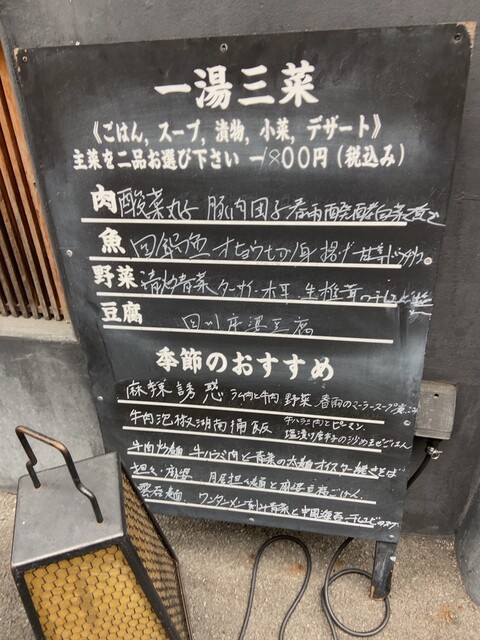 一湯三菜
《ごはん, スープ, 漬物, 小菜, デザート》
主菜を二品お選び下さい 一1800円(税込み)
肉 酸菜丸子 豚肉団子春雨醗酵白菜煮込
魚 回鍋魚 オヒョウ切り身揚げ
野菜 清炒青菜 ターサイ 木耳 生椎茸
豆腐 四川麻婆豆腐
季節のおすすめ
麻辣誘惑 ラム肉と牛肉 野菜 春雨のマーラースープ煮込み
牛肉泡椒湖南拌飯 牛ハラミ肉とピーマン
塩漬け唐辛子の汁かけまぜごはん
牛肉炒麺 牛ハラミ肉と青菜の太麺オイスター焼きそば
担々・麻婆 月尾担々麺と麻婆豆腐ごはん
雲呑麺 ワンタンメン 刻み青菜と